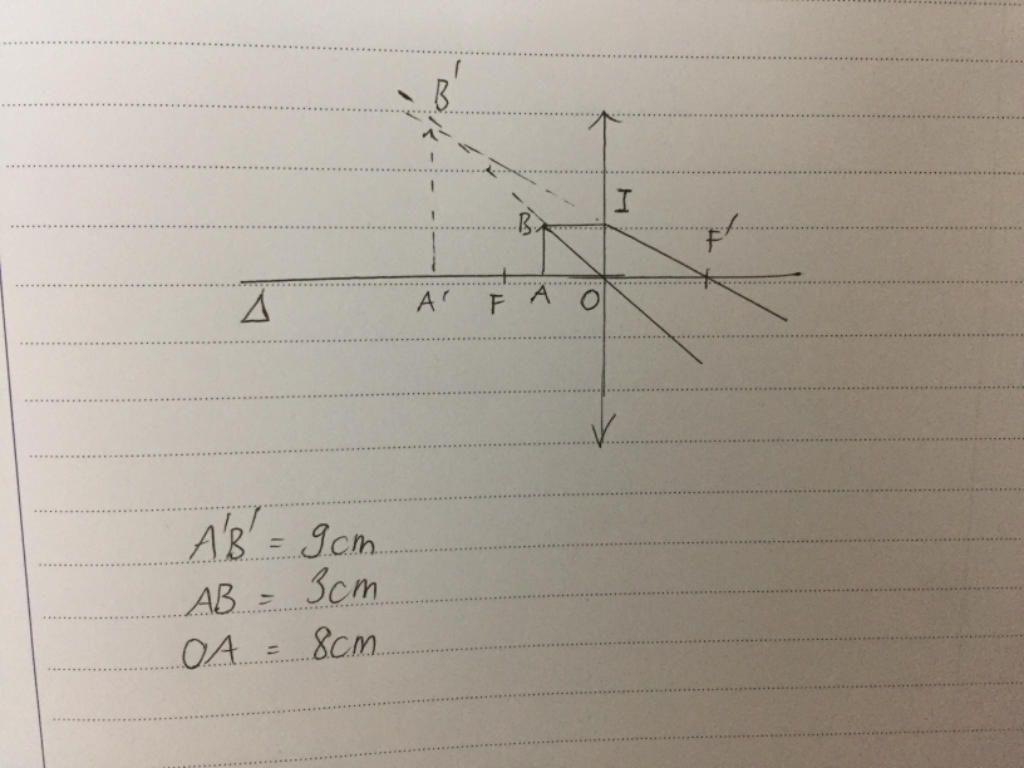 B'
I
B
F'
Δ A' F A O
A'B' = 9cm
AB = 3cm
OA = 8cm